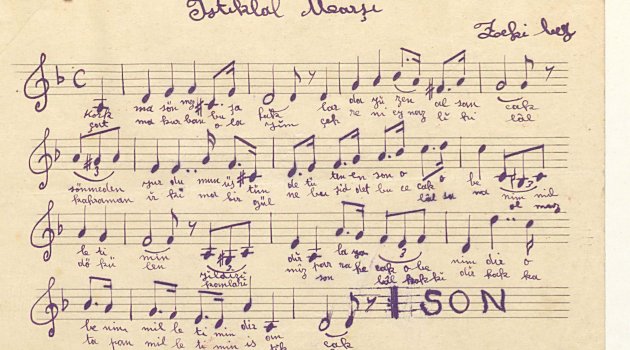 İstiklâl Marşı
Zeki beg
C
Kork ma sön mez bu şa fak lar da yü zen al san cak
çat ma kur ban o la yım çeh re ni ey naz lı hi lâl
3 3
sönmeden yur du mun üs tün de tü ten en son o cak o be nim mil
kahraman ır kı ma bir gül ne bu şid det bu ce lâl sa na ol maz
3 3
le ti min yıldızı dır par la ya cak o be nim dir o
dö kü len kanları mız son ra he lâl hakkı dır hak ka
be nim mil le ti min dir an cak
ta pan mil le ti min is tik lâl
SON